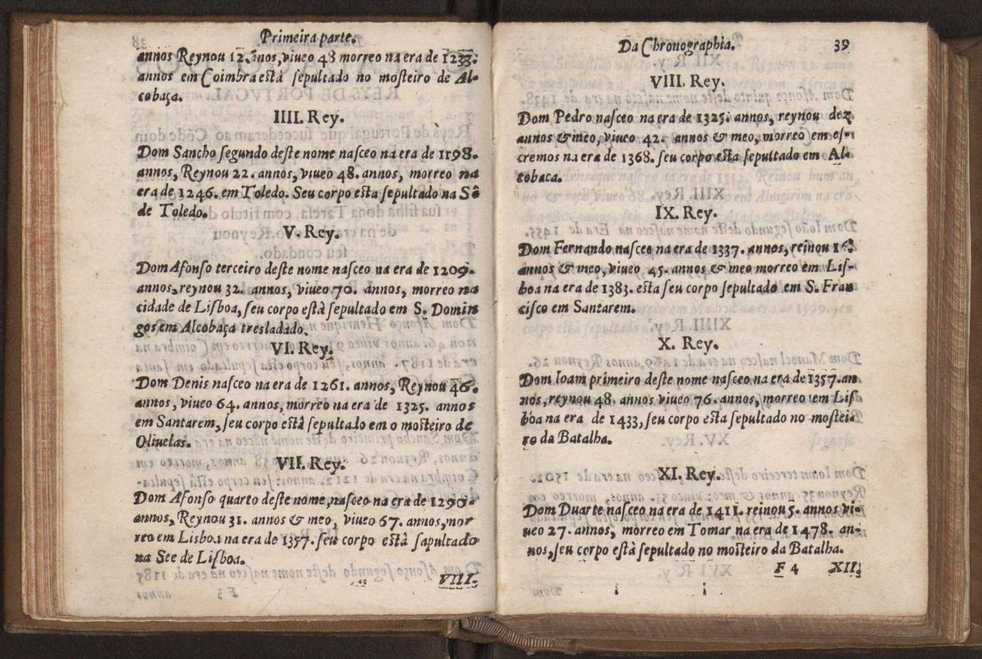 Primeira parte.
annos Reynou 12. ãnos, viueo 48 morreo na era de 1233.
annos em Coimbra està sepultado no mosteiro de Al-
cobaça.
IIII. Rey.
Dom Sancho segundo deste nome nasceo na era de 1198.
annos, Reynou 22. annos, viueo 48. annos, morreo na
era de 1246. em Toledo. Seu corpo esta sepultado na Sê
de Toledo.
V. Rey.
Dom Afonso terceiro deste nome nasceo na era de 1209.
annos, reynou 32. annos, viueo 70. annos, morreo na
cidade de Lisboa, seu corpo està sepultado em S. Domin
gos em Alcobaça tresladado.
VI. Rey.
Dom Denis nasceo na era de 1261. annos, Reynou 46.
annos, viueo 64. annos, morreo na era de 1325. annos
em Santarem, seu corpo està sepultado em o mosteiro de
Oliuelas.
VII. Rey.
Dom Afonso quarto deste nome, nasceo na era de 1290.
annos, Reynou 31. annos & meo, viueo 67. annos, mor
reo em Lisboa na era de 1357. seu corpo està sapultado
na See de Lisboa.
VIII.
Da Chronographia. 39
VIII. Rey.
Dom Pedro nasceo na era de 1325. annos, reynou dez
annos & meo, viueo 42. annos & meo, morreo em es-
cremos na era de 1368. seu corpo esta sepultado em Al-
cobaca.
IX. Rey.
Dom Fernando nasceo na era de 1337. annos, reinou 16.
annos & meo, viueo 45. annos & meo morreo em Lis-
boa na era de 1383. esta seu corpo sepultado em S. Fran
cisco em Santarem.
X. Rey.
Dom Ioam primeiro deste nome nasceo na era de 1357. an
nos, reynou 48. annos viueo 76. annos, morreo em Lis
boa na era de 1433, seu corpo està sepultado no mostei-
ro da Batalha.
XI. Rey.
Dom Duarte nasceo na era de 1411. reinou 5. annos vi-
ueo 27. annos, morreo em Tomar na era de 1478. an-
nos, seu corpo està sepultado no mosteiro da Batalha.
F 4 XII.